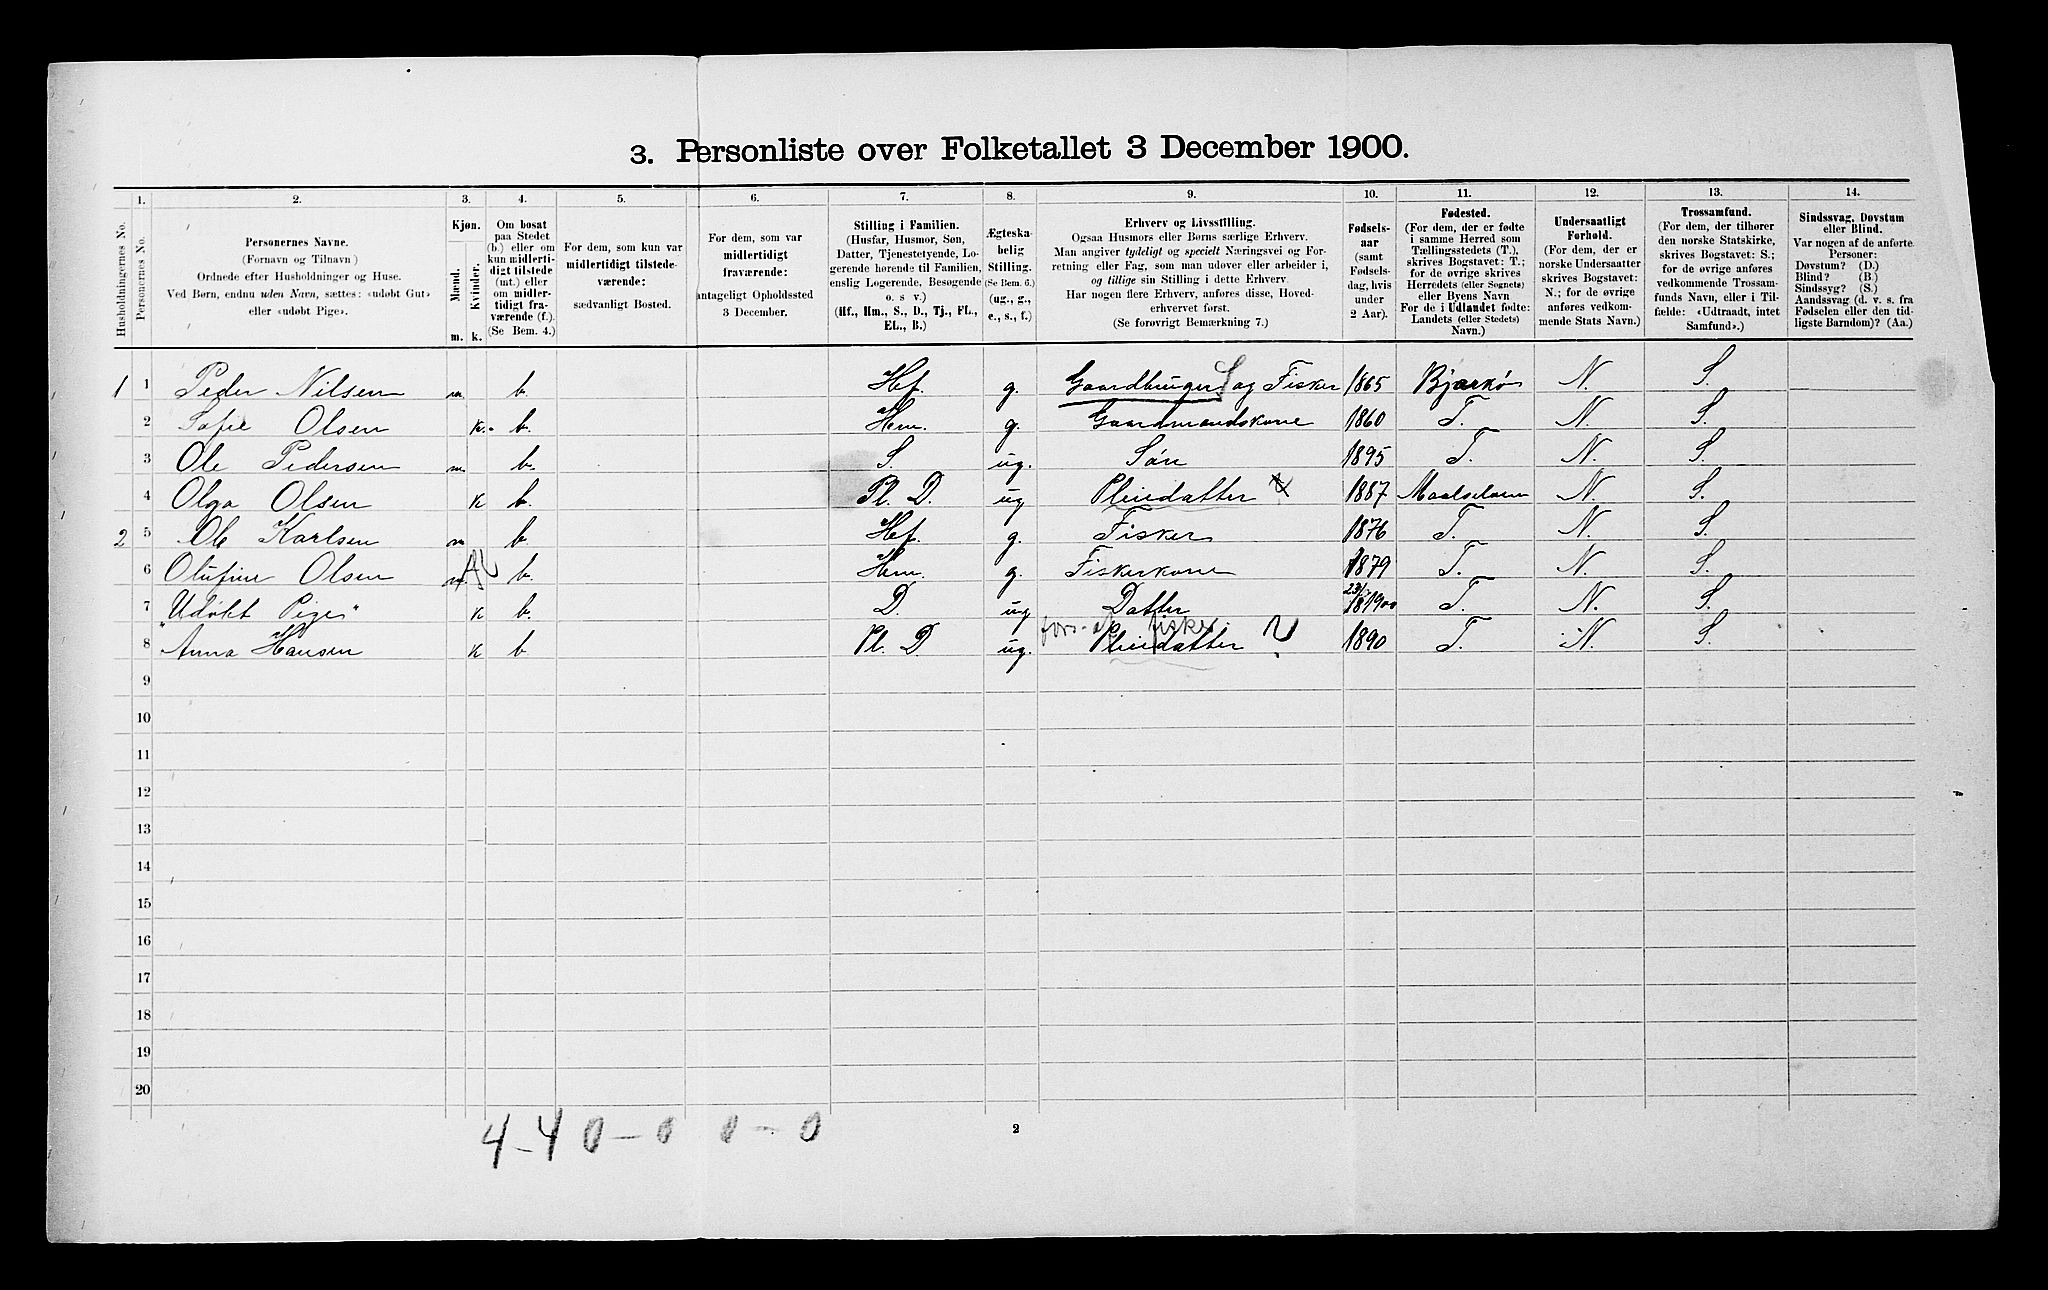 3. Personliste over Folketallet 3 December 1900.
1. 2. 3. 4. 5. 6. 7. 8. 9. 10. 11. 12. 13. 14.
Husholdningernes No.
Personernes No.
Personernes Navne.
(Fornavn og Tilnavn)
Ordnede efter Husholdninger og Huse.
Ved Børn, endnu uden Navn, sættes: «udøbt Gut»
eller «udøbt Pige».
Kjøn.
Mænd.
Kvinder.
m. k.
Om bosat
paa Stedet
(b.) eller om
kun midlerti-
digt tilstede
(mt.) eller
om midler-
tidigt fra-
værende (f.).
(Se Bem. 4.)
For dem, som kun var
midlertidigt tilstede-
værende:
sædvanligt Bosted.
For dem, som var
midlertidigt
fraværende:
antageligt Opholdssted
3 December.
Stilling i Familien.
(Husfar, Husmor, Søn,
Datter, Tjenestetyende, Lo-
gerende hørende til Familien,
enslig Logerende, Besøgende
o. s v.)
(Hf., Hm., S., D., Tj., FL.,
EL., B.)
Ægteska-
belig
Stilling.
(Se Bem. 6.)
(ug., g.,
e., s., f.)
Erhverv og Livsstilling.
Ogsaa Husmors eller Børns særlige Erhverv.
Man angiver tydeligt og specielt Næringsvei og For-
retning eller Fag, som man udover eller arbeider i,
og tillige sin Stilling i dette Erhverv.
Har nogen flere Erhverv, anføres disse, Hoved-
erhvervet først.
(Se forøvrigt Bemærkning 7.)
Fødsels-
aar
(samt
Fødsels-
dag, hvis
under
2 Aar).
Fødested.
(For dem, der er fødte
i samme Herred som
Tællingsstedets (T.),
skrives Bogstavet: T.;
for de øvrige skrives
Herredets (eller Sognets)
eller Byens Navn
For de i Udlandet fødte:
Landets (eller Stedets)
Navn.)
Undersaatligt
Forhold.
(For dem, der er
norske Undersaatter
skrives Bogstavet:
N.; for de øvrige
anføres vedkom-
mende Stats Navn.)
Trossamfund.
(For dem, der tilhører
den norske Statskirke,
skrives Bogstavet: S.;
for de øvrige anføres
vedkommende Trossam-
funds Navn, eller i Til-
fælde: «Udtraadt, intet
Samfund».)
Sindssvag, Døvstum
eller Blind.
Var nogen af de anførte
Personer:
Døvstum? (D.)
Blind? (B.)
Sindssyg? (S.)
Aandssvag (d. v. s. fra
Fødselen eller den tid-
ligste Barndom)? (Aa.)
1 1 Peder Nilsen m. b. Hf. g. Gaardbruger S og Fisker 1865 Bjarkø N. S.
2 Sofie Olsen k. b. Hm. g. Gaardmandskone 1860 T. N. S.
3 Ole Pedersen m. b. S. ug. Søn 1895 T. N. S.
4 Olga Olsen k b. Pl. D. ug Pleiedatter 1887 Maalselven N. S.
2 5 Ole Karlsen m b. Hf. g. Fisker 1876 T. N. S.
6 Olufine Olsen b. Hm. g. Fiskerkone 1879 T. N. S.
7 "Udøbt Pige" k b. D. ug Datter 1900 T. N. S.
fors. af fisker
8 Anna Hansen k b. Pl. D. ug. Pleiedatter 1890 T. N. S.
9
10
11
12
13
14
15
16
17
18
19
20
4-4 0-0 0-0
2